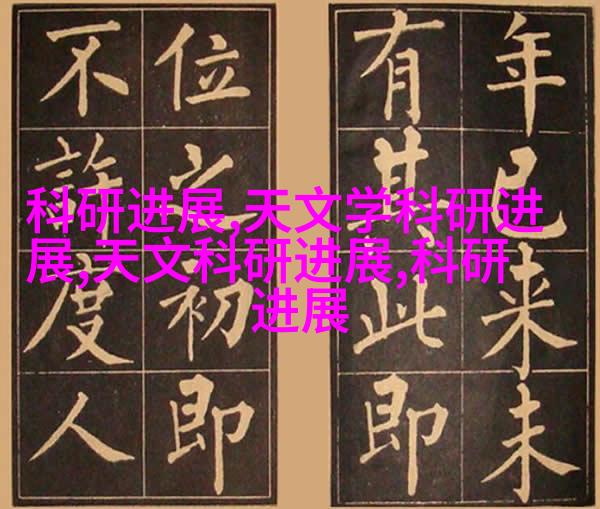 年已来未
有其此即
位之初即
不許度人
科研进展,天文学科研进
展,天文科研进展,科研
进展